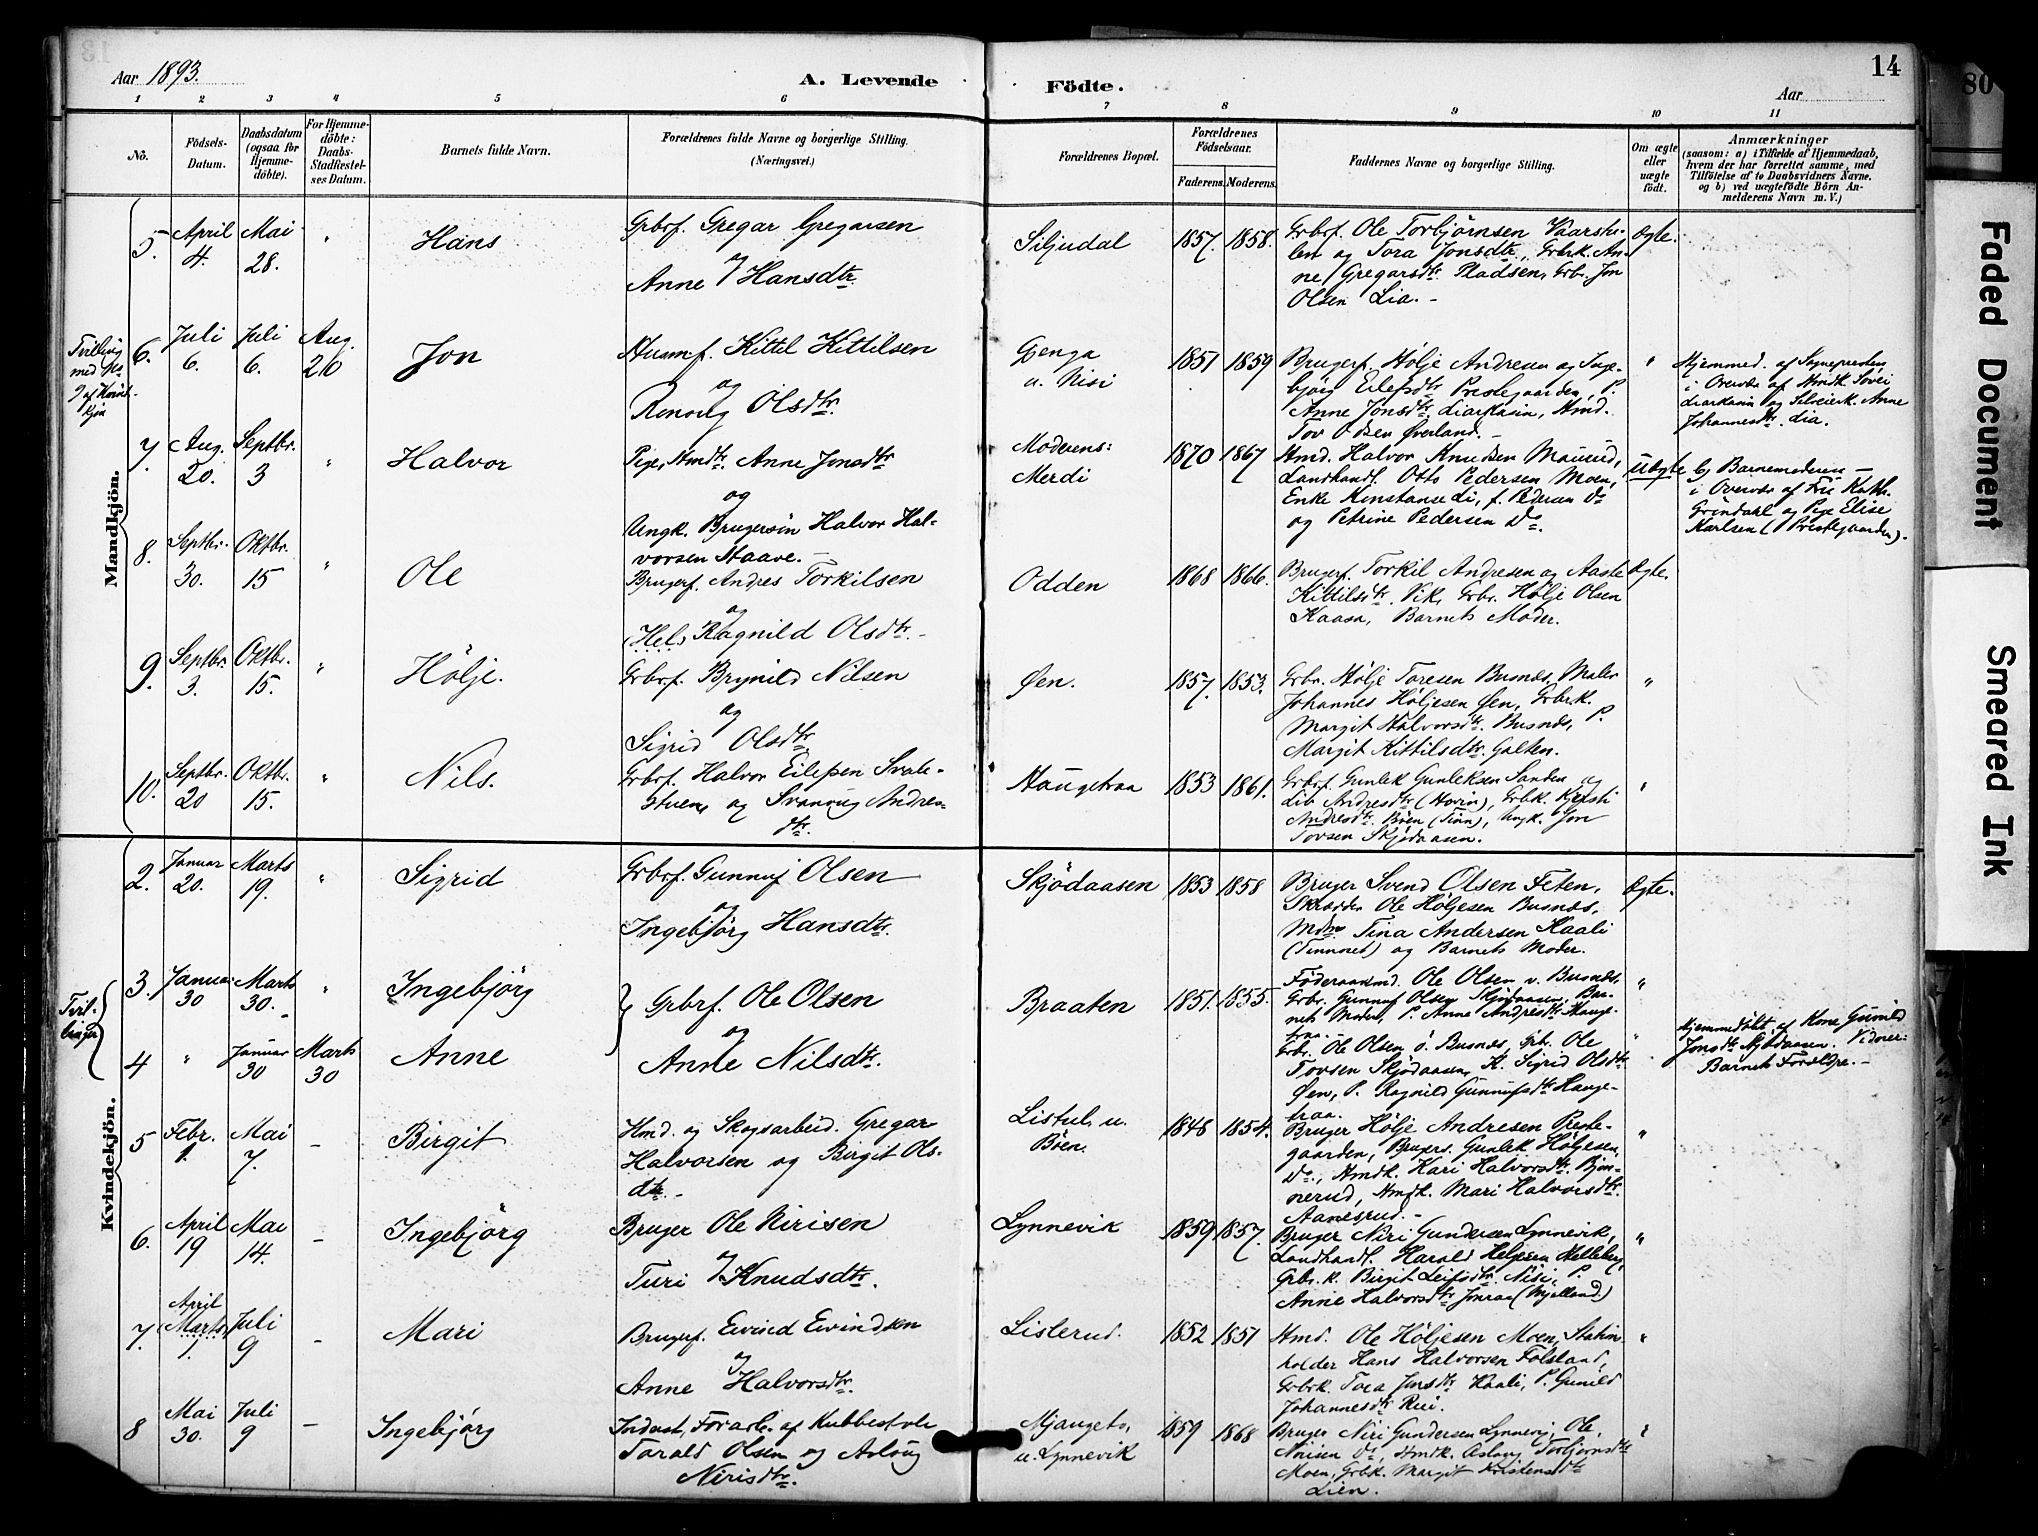 Aar 1893.
A. Levende
Födte.
14
Aar
80
1 2 3 4 5 6 7 8 9 10 11
No.
Födsels-
Datum.
Daabsdatum
(ogsaa for
Hjemme-
döbte).
For Hjemme-
döbte:
Daabs-
Stadfæstel-
ses Datum.
Barnets fulde Navn.
Forældrenes fulde Navne og borgerlige Stilling.
(Næringsvei.)
Forældrenes Bopæl.
Forældrenes
Födselsaar.
Faderens. Moderens.
Faddernes Navne og borgerlige Stilling.
Om ægte
eller
uægte
födt.
Anmærkninger
(saasom: a) i Tilfælde af Hjemmedaab,
hvem der har forrettet samme, med
Tilföielse af to Daabsvidners Navne,
og b) ved uægtefödte Börn An-
melderens Navn m. V.)
Mandkjön.
5. April 4. Mai 28. "
Hans
Grbrf. Gregar Gregarsen
og
Anne Hansdtr.
Siljudal
1857. 1858.
Grbrf. Ole Torbjørnsen Vaarstu-
len og Tora Jonsdtr., Grbrk. An-
ne Gregarsdtr. Pladsen, Grbr. Jon
Olsen Lia. -
Ægte.
Tvilling
med No
9 af Kvinde-
kjön
6. Juli 6. Juli 6. Aug. 26
Jon
Husmf. Kittil Kittilsen
og
Rønnaug Olsdtr.
Gjenga
u. Nisi
1851 1859
Brugerf. Hölje Andresen og Inge-
björg Eilefsdtr. Prestegaarden, P.
Anne Jonsdtr. Liarkasin, Hmd.
Tov Olsen Øverland. -
"
Hjemmed. af Sognepresten,
i Overvær af Hmdk. Sovei
Liarkasin og Selveierk. Anne
Johannesdtr. Lia.
7. Aug. 20. Septbr. 3 "
Halvor
Pige, Hmdtr. Anne Jonsdtr
og
Ungk. Brugersön Halvor Hal-
vorsen Staave. -
Moderens:
Merdi
1870 1867
Hmd. Halvor Knudsen Maurud,
Landhandl. Otto Pedersen Moen,
Enke Konstance Li, f. Pedersen Do
og Petrine Pedersen Do.
Uægte
b) Barnemoderen -
i Overvær af Frk Kath.
Gröndahl og Pige Elise
Karlsen (Prestegaarden).
8. Septbr. 30. Oktbr. 15 "
Ole
Brugerf. Andres Torkilsen
og
(Hel) Ragnild Olsdtr. -
Odden
1868 1866.
Brugerf. Torkil Andresen og Aaste
Kittilsdtr. Vik, Grbr. Hölje Olsen
Kaasa, Barnets Moder.
Ægte.
9. Septbr. 3. Oktbr. 15. "
Hölje.
Grbrf. Brynild Nilsen
og
Sigrid Olsdtr.
Øen.
1857. 1853.
Grbr. Hölje Toresen Busnæs, Maler
Johannes Höljesen Øen, Grbrk.
Margit Halvorsdtr. Busnæs, P.
Margit Kittilsdtr. Galten.
"
10. Septbr. 20 Oktbr. 15. "
Nils.
Grbrf. Halvor Eilefsen Svale-
stuen, og Svanaug Andres-
dtr.
Haugetraa
1853 1861.
Grbrf. Gunlek Gunleksen Sanden og
Liv Andresdtr (Hovin), Grbk. Kjersti
Andresdtr. Böen (Tinn), Ungk. Jon
Tovsen Skjödaasen.
"
Kvindekjön.
2. Januar 20. Marts 19. "
Sigrid
Grbrf. Gunnuf Olsen
og
Ingebjörg Hansdtr.
Skjödaasen
1853 1858
Bruger Svend Olsen Feten,
Skrædder Ole Höljesen Busnæs,
Mdm Tina Andersen Kaali
(Tinnoset) og Barnets Moder.
Ægte.
Tvil-
linger
3. Januar 30 Marts 30. "
Ingebjörg
Grbrf. Ole Olsen
og
Anne Nilsdtr.
Braaten
1851. 1855.
Föderaadsmd. Ole Olsen v. Busnæs,
Grbr. Gunnuf Olsen Skjödaasen, Bar-
nets Moder, P. Anne Andresdtr Hauge-
traa.
"
4 " Januar 30 Marts 30
Anne
Grbr. Ole Olsen ö. Busnæs, Grb. Ole
Tovsen Skjödaasen, K. Sigrid Olsdtr
Øen, P. Ragnild Gunnufsdtr Hauge-
traa.
"
Hjemmedöbt af Kone Gunild
Jonsdtr Skjödaasen. Vidner:
Barnets Forældre. -
5 Febr. 1. Mai 7. -
Birgit
Hmd. og Skogsarbeid. Gregar
Halvorsen og Birgit Ols-
dtr. -
Listul, u.
Böen.
1848 1854.
Bruger Hölje Andresen Preste-
gaarden, Brugers. Gunlek Höljesen
Do., Hmdk. Kari Halvorsdtr. Björ-
nerud, Hmdk. Mari Halvorsdtr.
Aanesrud. -
"
6. April 19 Mai 14. -
Ingebjörg
Bruger Ole Nirisen
og
Turi Knudsdtr.
Lynnevik
1859 1857.
Bruger Niri Gundersen Lynnevik,
Landhandl. Harald Helgesen Kelleberg,
Grbr. k. Birgit Leifsdtr. Nisi, P.
Anne Halvorsdtr Jonraa (Mjelland)
"
7. April (Marts) 1. Juli 9 -
Mari
Brugerf. Eivind Eivindsen
og
Anne Halvorsdtr.
Listerud.
1852 1851
Hmd. Ole Höljesen Moen, Station-
holder Hans Halvorsen Folsland,
Grbrk. Tora Jonsdtr Kaali, P. Gunild
Johannesdtr Rui.
"
8 Mai 30. Juli 9 -
Ingebjörg
Indust. Forarb. af Kubbestole
Tarald Olsen og Aslaug
Nirisdtr.
Mjaugeto,
u. Lynnevik
1859 1868
Bruger Niri Gundersen Lynnevig, Ole
Nirisen Do, Hmdk. Aslaug Torbjörnsdtr
Moen, Grbk. Margit Kristensdtr
Lien.
"
Faded Document
Smeared Ink